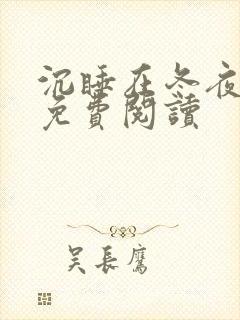 沉睡在冬夜
免費閱讀
吴長鷹